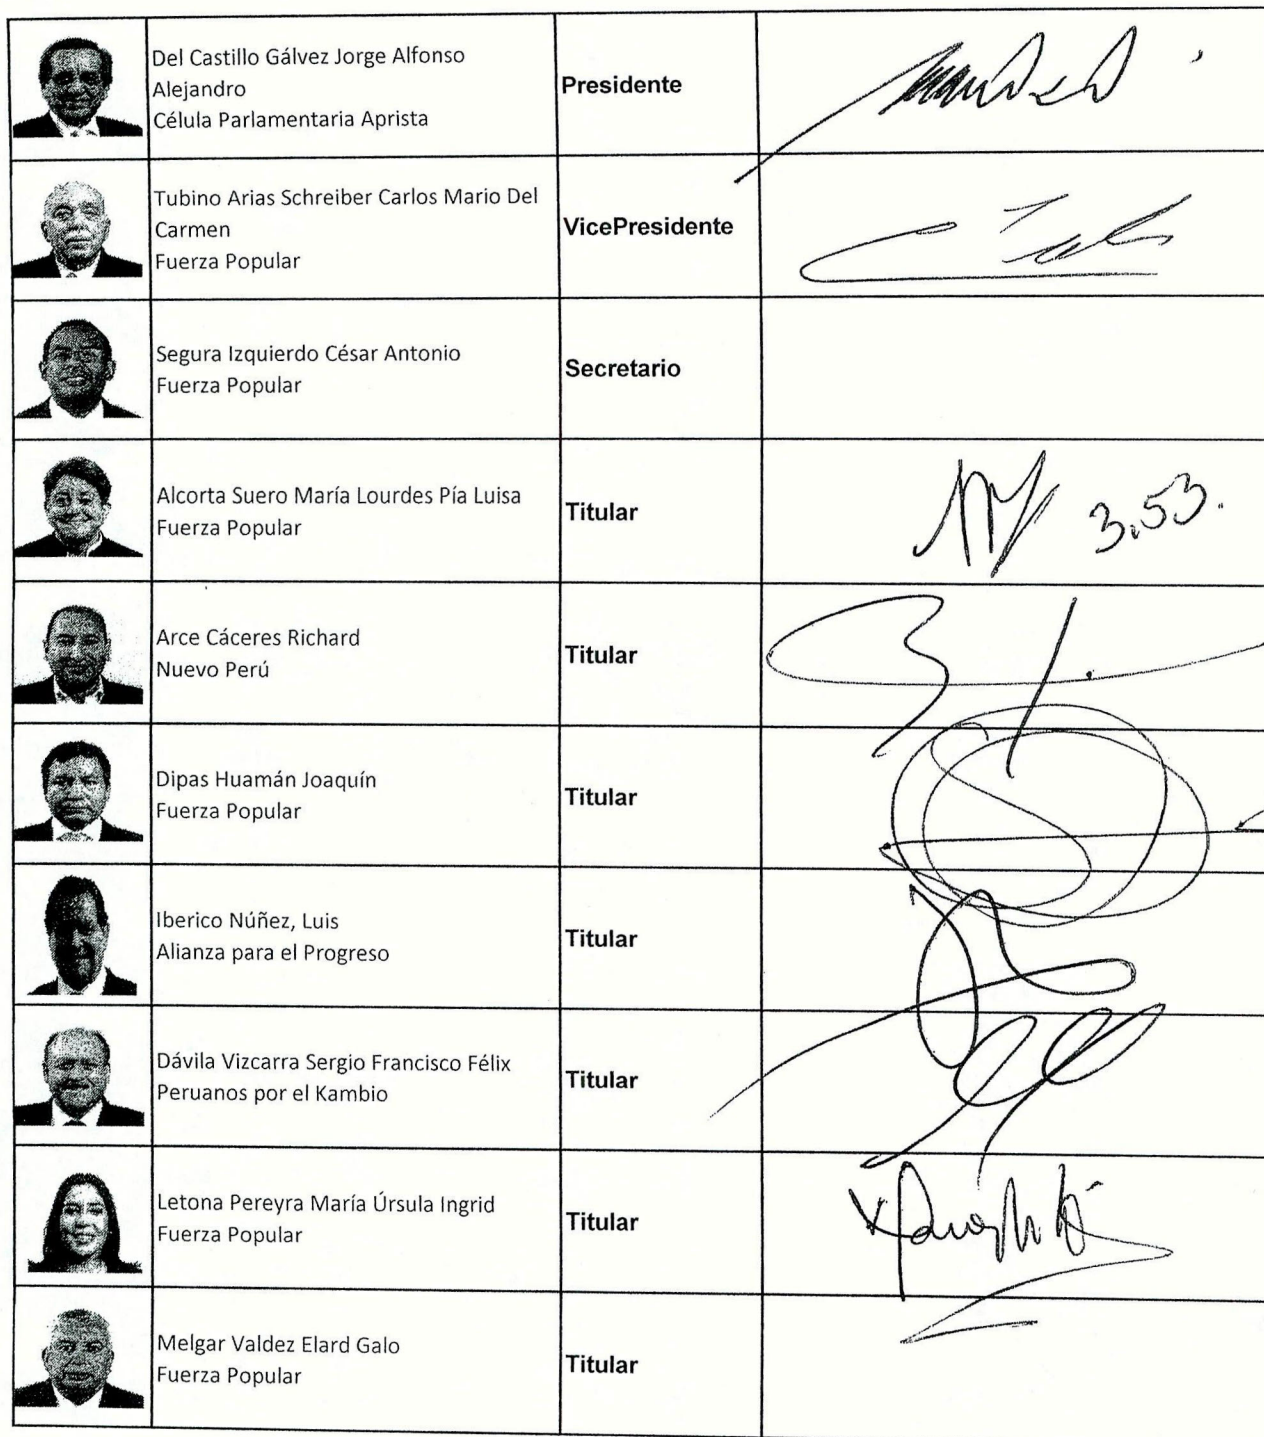 Del Castillo Gálvez Jorge Alfonso
Alejandro
Célula Parlamentaria Aprista
Presidente
Tubino Arias Schreiber Carlos Mario Del
Carmen
Fuerza Popular
VicePresidente
Segura Izquierdo César Antonio
Fuerza Popular
Secretario
Alcorta Suero María Lourdes Pía Luisa
Fuerza Popular
Titular
3.53.
Arce Cáceres Richard
Nuevo Perú
Titular
Dipas Huamán Joaquín
Fuerza Popular
Titular
Iberico Núñez, Luis
Alianza para el Progreso
Titular
Dávila Vizcarra Sergio Francisco Félix
Peruanos por el Kambio
Titular
Letona Pereyra María Úrsula Ingrid
Fuerza Popular
Titular
Melgar Valdez Elard Galo
Fuerza Popular
Titular